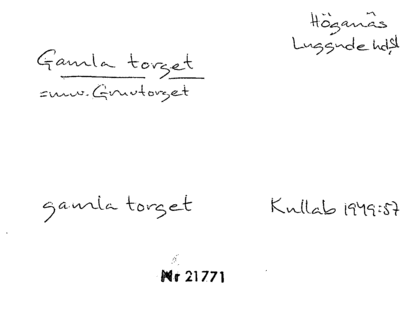 Höganäs
Luggude hd
Gamla torget
=nuv. Gruvtorget
gamla torget Kullab 1949:57
Nr 21771